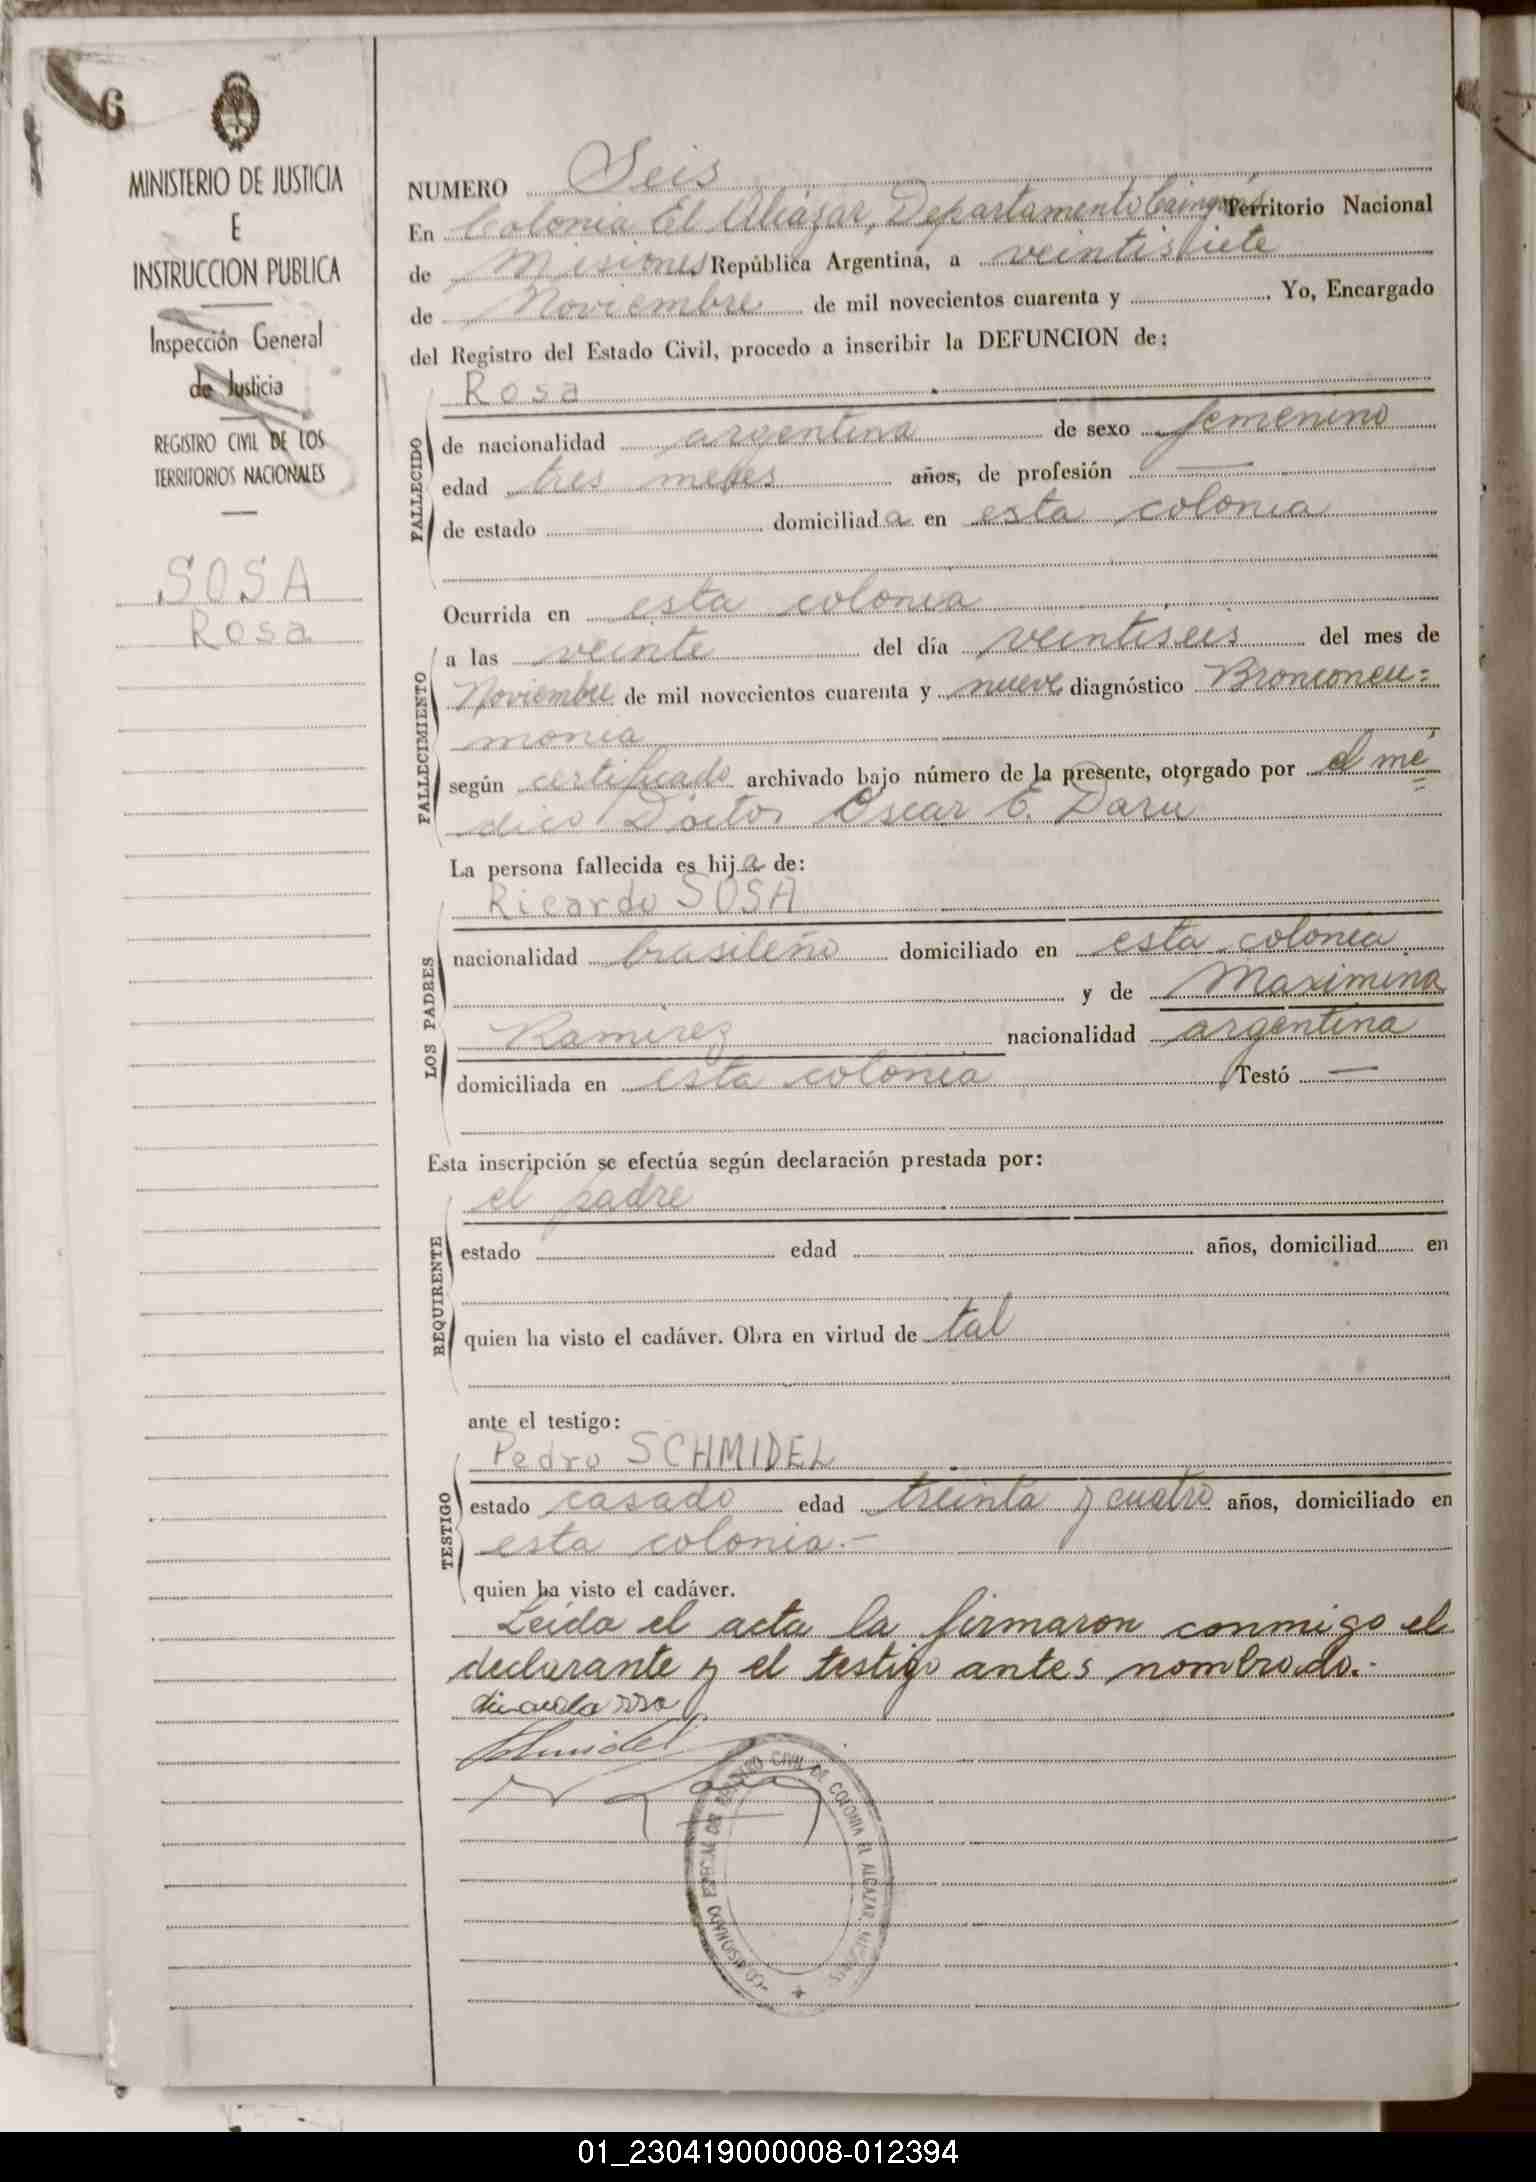 6
MINISTERIO DE JUSTICIA
E
INSTRUCCION PUBLICA
Inspección General
de Justicia
REGISTRO CIVIL DE LOS
TERRITORIOS NACIONALES
SOSA
Rosa
NUMERO Seis
En Colonia El Alcázar, Departamento Cainguás Territorio Nacional
de Misiones República Argentina, a veintisiete
de Noviembre de mil novecientos cuarenta y Yo, Encargado
del Registro del Estado Civil, procedo a inscribir la DEFUNCION de:
FALLECIDO
Rosa
de nacionalidad argentina de sexo femenino
edad tres meses años, de profesión —
de estado domiciliada en esta colonia
FALLECIMIENTO
Ocurrida en esta colonia
a las veinte del día veintiseis del mes de
Noviembre de mil novecientos cuarenta y nueve diagnóstico Bronconeu=
monia
según certificado archivado bajo número de la presente, otorgado por el mé=
dico Doctor Oscar E. Daru
La persona fallecida es hija de:
LOS PADRES
Ricardo SOSA
nacionalidad brasileño domiciliado en esta colonia
y de Maximina
Ramirez nacionalidad argentina
domiciliada en esta colonia Testó —
Esta inscripción se efectúa según declaración prestada por:
REQUIRENTE
el padre
estado edad años, domiciliad en
quien ha visto el cadáver. Obra en virtud de tal
ante el testigo:
TESTIGO
Pedro SCHMIDEL
estado casado edad treinta y cuatro años, domiciliado en
esta colonia.—
quien ha visto el cadáver.
Leída el acta la firmaron conmigo el
declarante y el testigo antes nombrado.-
Schmidel
COMISIONADO ESPECIAL DEL REGISTRO CIVIL DE COLONIA EL ALCAZAR, MISIONES
01_230419000008-012394